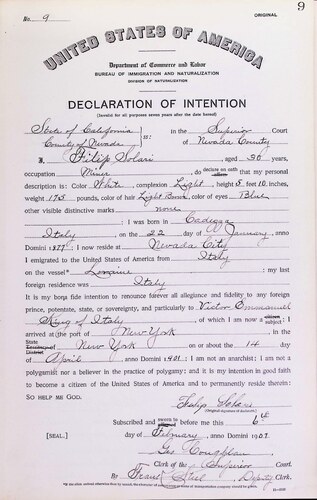 9
No. 9
ORIGINAL
UNITED STATES OF AMERICA
Department of Commerce and Labor
BUREAU OF IMMIGRATION AND NATURALIZATION
DIVISION OF NATURALIZATION
DECLARATION OF INTENTION
(Invalid for all purposes seven years after the date hereof)
State of California
County of Nevada ss: in the Superior Court
of Nevada County
I, Filip Solari, aged 30 years,
occupation Miner, do declare on oath that my personal
description is: Color White, complexion Light, height 5 feet 10 inches,
weight 175 pounds, color of hair Light Brown, color of eyes Blue
other visible distinctive marks none
I was born in
Italy on the 22 day of January, anno
Domini 1877; I now reside at Nevada City
I emigrated to the United States of America from Italy
on the vessel* Loraine; my last
foreign residence was Italy
It is my bona fide intention to renounce forever all allegiance and fidelity to any foreign
prince, potentate, state, or sovereignty, and particularly to Victor Emmanuel
King of Italy, of which I am now a subject; I
arrived at the port of New York, in the
State of New York on or about the 14 day
of April, anno Domini 1901; I am not an anarchist; I am not a
polygamist nor a believer in the practice of polygamy; and it is my intention in good faith
to become a citizen of the United States of America and to permanently reside therein:
SO HELP ME GOD.
(Original signature of declarant)
Subscribed and sworn to before me this 6th
[SEAL.] day of February, anno Domini 1907.
Clerk of the Superior Court.
By Deputy Clerk.